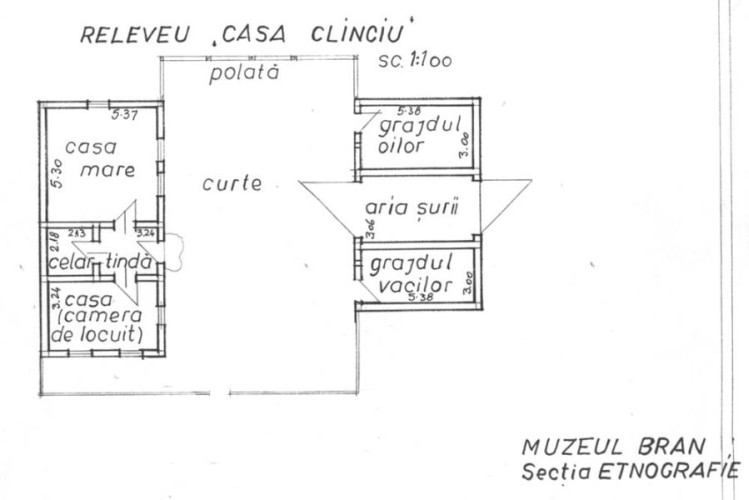 RELEVEU „CASA CLINCIU"
SC. 1:100
polată
5.37
casa
mare
5.30
curte
5.38
grajdul
oilor
3.00
aria șurii
3.06
2.13
3.24
2.18
celar
tindă
grajdul
vacilor
5.38
3.00
3.24
casa
(camera
de locuit)
MUZEUL BRAN
Secția ETNOGRAFIE